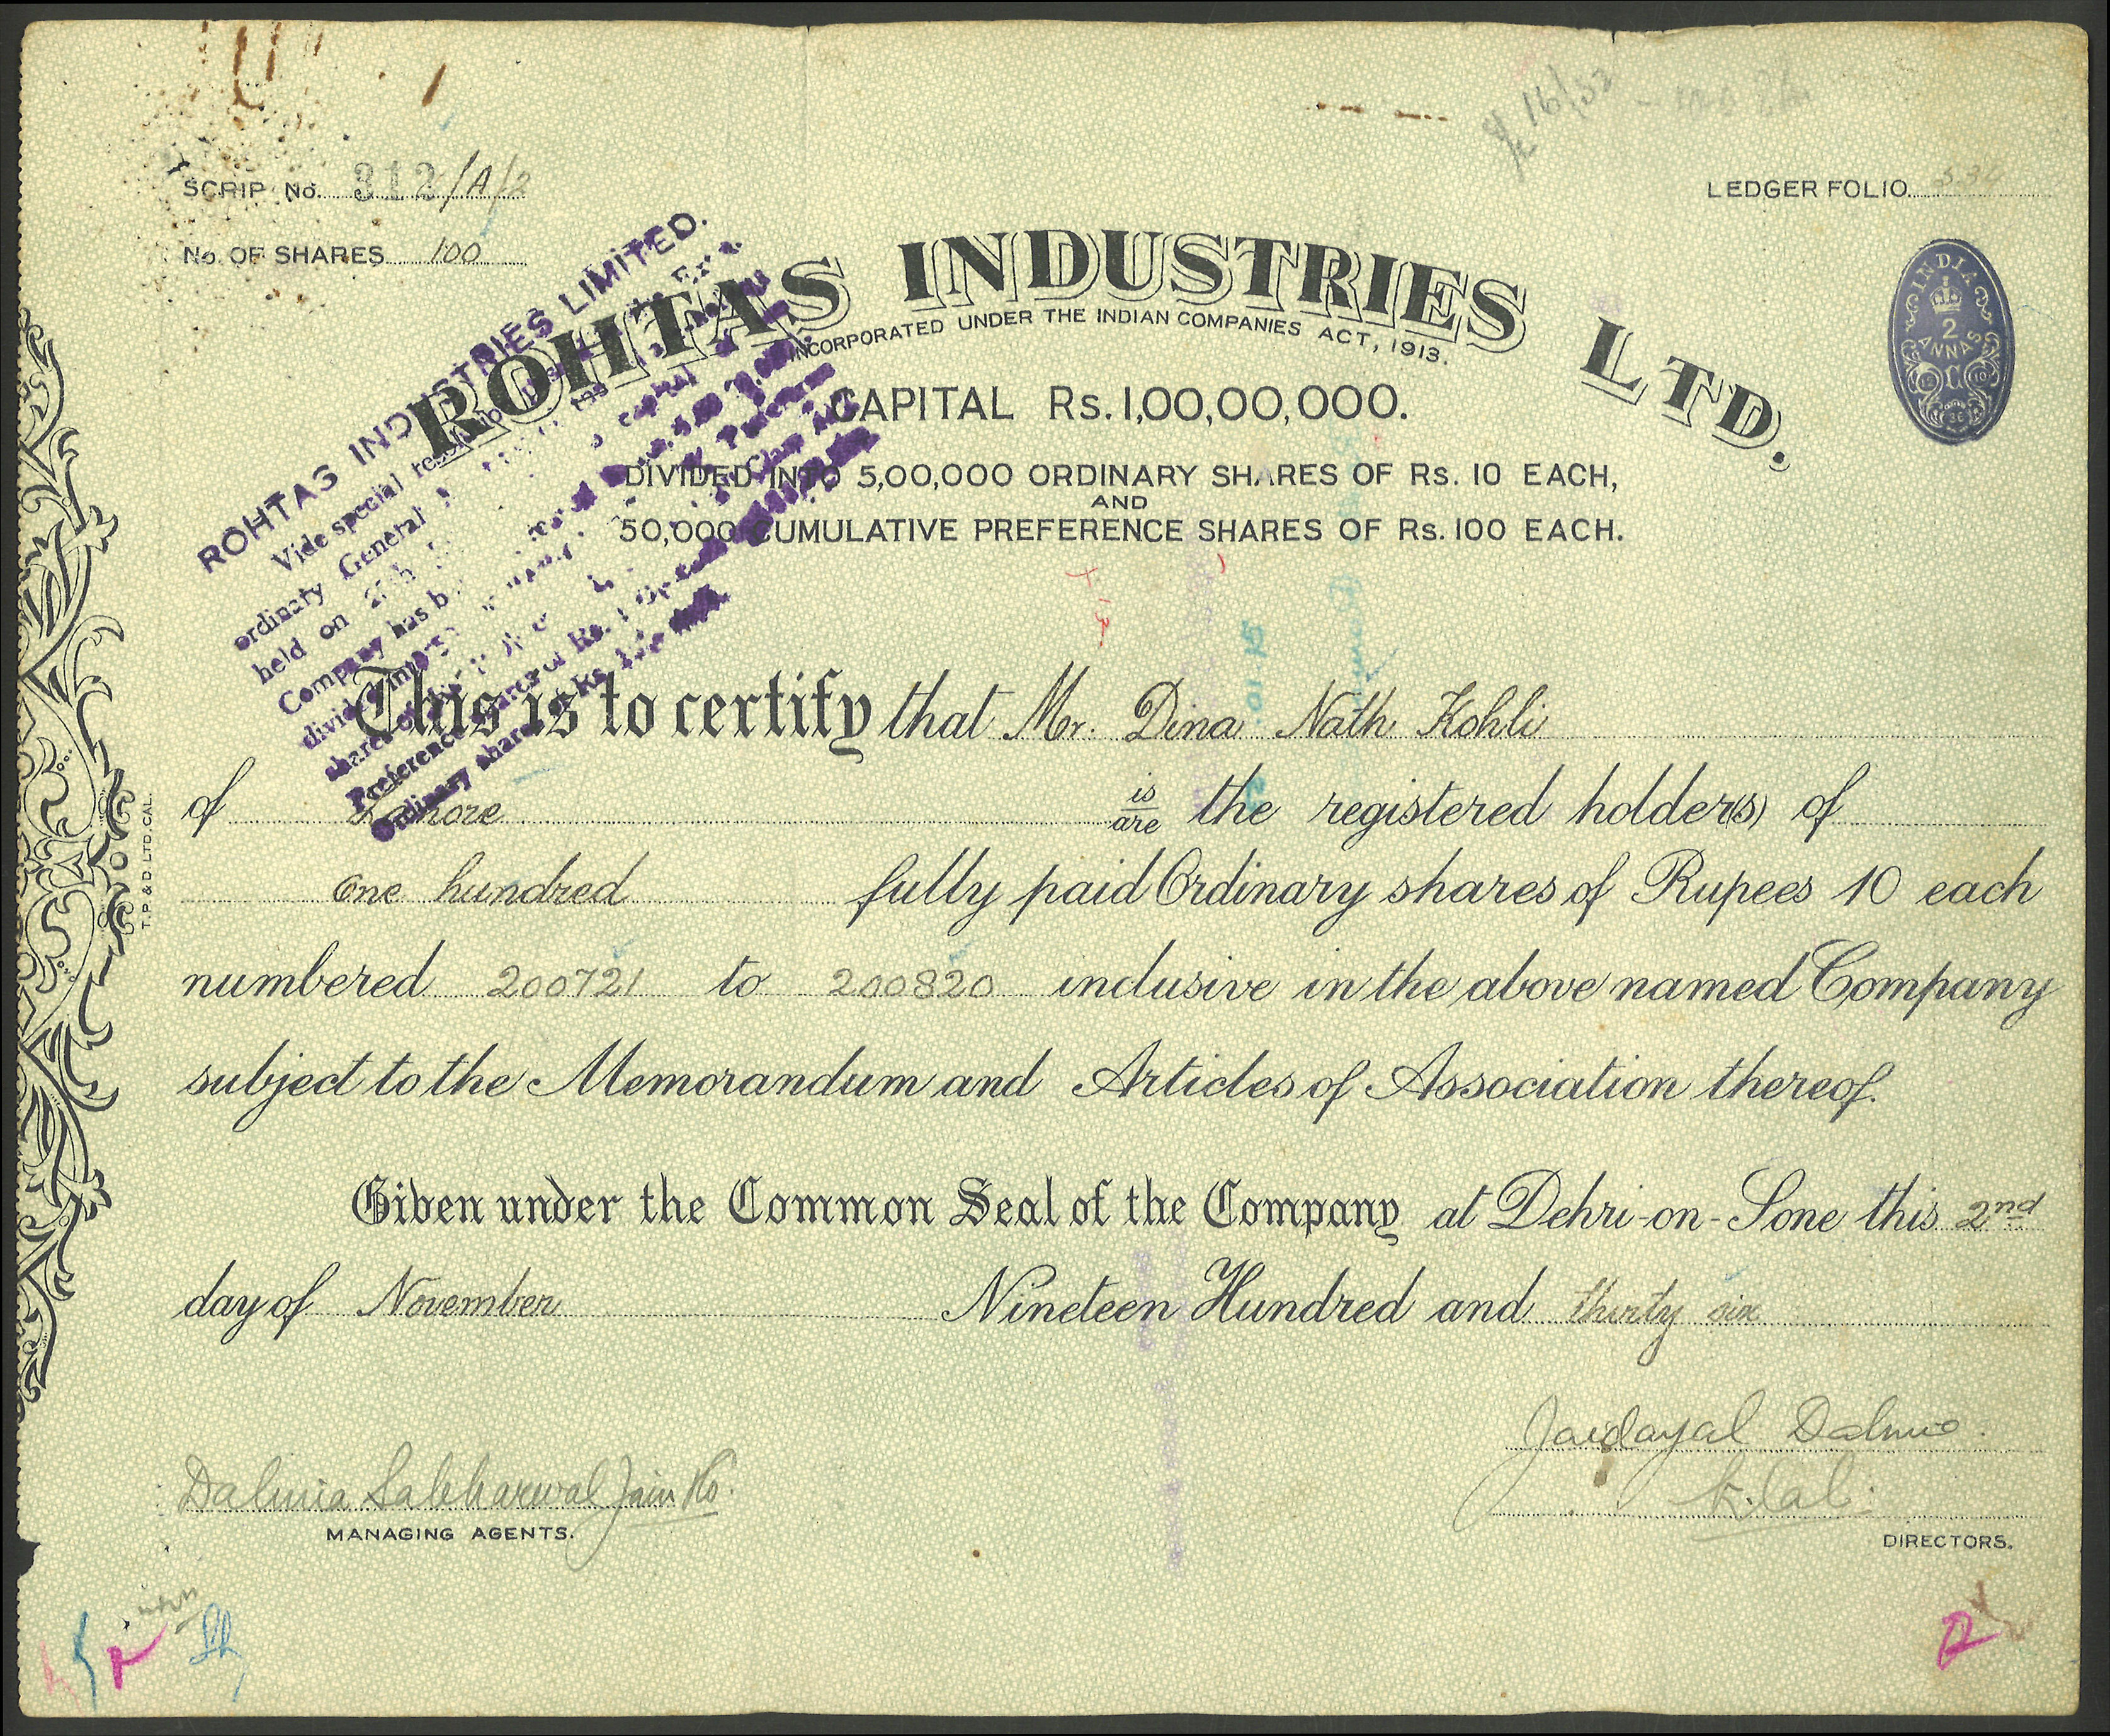 SCRIP No. 312/A/2
LEDGER FOLIO
No. OF SHARES 100
INDIA
2
ANNAS
ROHTAS INDUSTRIES LTD.
INCORPORATED UNDER THE INDIAN COMPANIES ACT, 1913.
CAPITAL Rs. 1,00,00,000.
DIVIDED INTO 5,00,000 ORDINARY SHARES OF Rs. 10 EACH,
AND
50,000 CUMULATIVE PREFERENCE SHARES OF Rs. 100 EACH.
ROHTAS INDUSTRIES LIMITED.
Vide special
ordinary General
held on
Company has
Preference shares of Rs.
Ordinary shares
This is to certify that Mr. Dina Nath Kohli
of Lahore is/are the registered holder(s) of
One hundred fully paid Ordinary shares of Rupees 10 each
numbered 200721 to 200820 inclusive in the above named Company
subject to the Memorandum and Articles of Association thereof.
Given under the Common Seal of the Company at Dehri-on-Sone this 2nd
day of November Nineteen Hundred and thirty six
Jaidayal Dalmia
Dalmia Sabharwal Jain Ko.
K. Lal.
MANAGING AGENTS.
DIRECTORS.
T. P. & D. LTD. CAL.